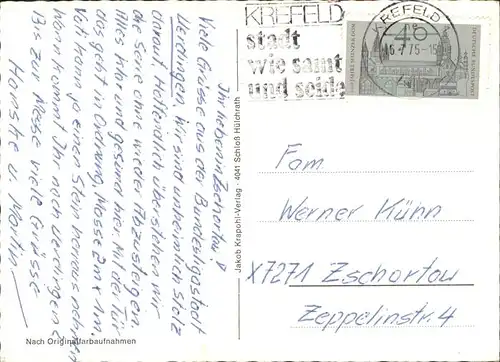 KREFELD
stadt
wie samt
und seide
KREFELD
-5.-7.75-15
40
Ihr lieben in Zschortau!
Viele Grüsse aus der Bundesligastadt
Uerdingen. Wir sind unheimlich stolz
darauf. Hoffentlich überstehen wir
die Serie ohne wieder Abzusteigen.
Alles klar und gesund hier. Mit der Tür
das geht in Ordnung. Masse 2m x 1m.
Volt kann ja einen Stein heraus nehmen
Wann kommt Ihr nach Uerdingen?
Bis zur Messe viele Grüsse
u. Martin
Jakob Krapohl-Verlag · 4041 Schloß Hülchrath
Nach Originalfarbaufnahmen
Fam.
Werner Kühn
X7271 Zschortau
Zeppelinstr. 4